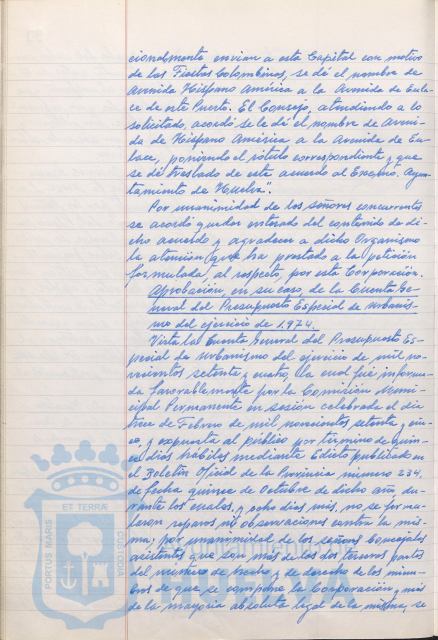 cionalmente envian a esta Capital con motivo
de las Fiestas Colombinas, se dé el nombre de
Avenida Hispano América a la Avenida de Enla-
ce de este Puerto. El Consejo, atendiendo a lo
solicitado, acordó se le dé el nombre de Aveni-
da de Hispano América a la Avenida de En-
lace, poniendo el rótulo correspondiente y que
se dé traslado de este acuerdo al Excmo. Ayun-
tamiento de Huelva".
Por unanimidad de los señores concurrentes
se acordó quedar enterado del contenido de di-
cho acuerdo y agradecer a dicho Organismo
la atención que ha prestado a la petición
formulada, al respecto, por esta Corporación.
Aprobación, en su caso, de la Cuenta Ge-
neral del Presupuesto Especial de Urbanis-
mo del ejercicio de 1.974.
Vista la Cuenta General del Presupuesto Es-
pecial de Urbanismo del ejercicio de mil no-
vecientos setenta y cuatro, la cual fué informa-
da favorablemente por la Comisión Munici-
pal Permanente en sesión celebrada el dia
trece de Febrero de mil novecientos setenta y cin-
co, y expuesta al público por término de quin-
ce dias hábiles mediante Edicto publicado en
el Boletin Oficial de la Provincia número 234,
de fecha quince de Octubre de dicho año, du-
rante los cuales, y ocho dias más, no se formu-
laron reparos ni observaciones contra la mis-
ma; por unanimidad de los señores Concejales
asistentes que son más de las dos terceras partes
del número de hecho y de derecho de los miem-
bros de que se compone la Corporación y más
de la mayoria absoluta legal de la misma, se
PORTUS MARIS
ET TERRAE
CUSTODIA
HUELVA